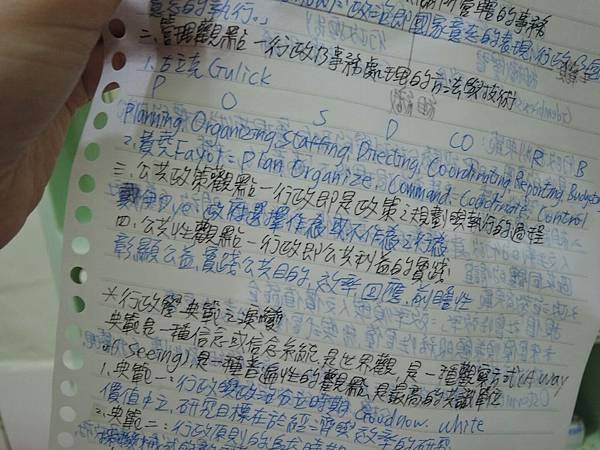 意志的執行。」
二、管理觀點—行政乃事務處理的方法與技術
1.古立克 Gulick
P O S D CO R B
Planning, Organizing, Staffing, Directing, Coordinating, Reporting, Budgeting
2.費堯 Fayol = Plan, Organize, Command, Coordinate, Control
三、公共政策觀點—行政即是政策之規劃與執行的過程
戴伊 Dye: 政府選擇作為或不作為之
四、公共性觀點—行政即公共利益的實踐
彰顯公益,實踐公共目的,效率,回應,前瞻性
*行政學典範之演變
典範是一種信念或信念系統,是世界觀,是一種觀察方式(A way
of seeing),是一種普遍性的觀點,是最高的共識單位
1.典範一:行政與政治分立時期 Goodnow. White
價值中立,研究目標在於經濟與效率的研究
2.典範二:行政原則的